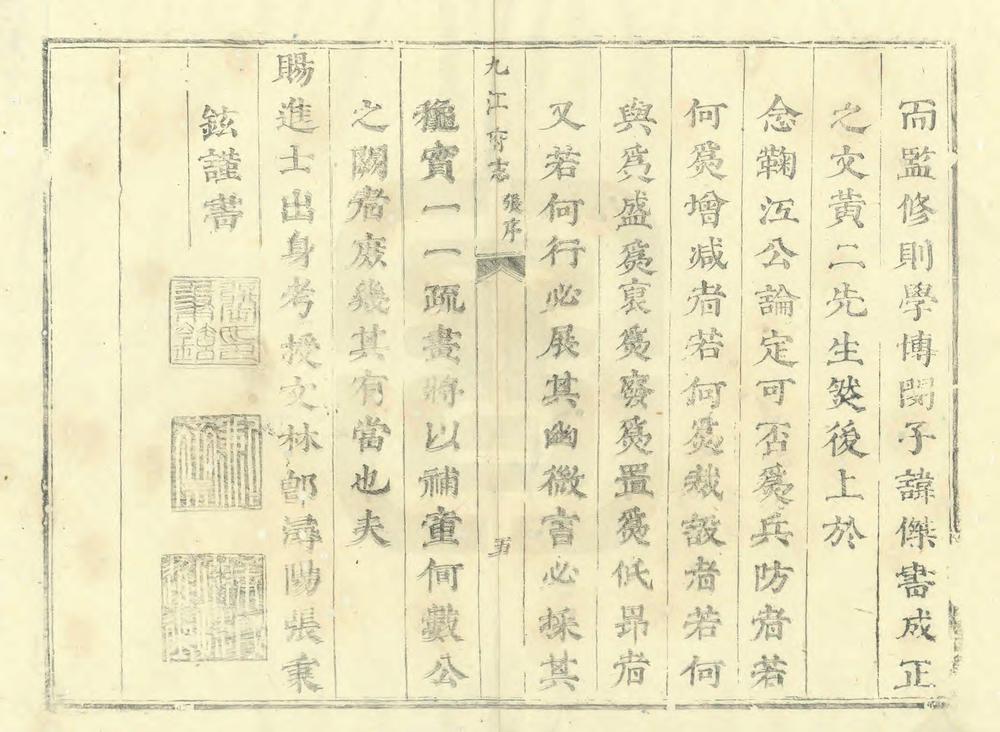 而監修則學博閔子諱傑書成正
之文黃二先生然後上於
念鞠江公論定可否爲兵防者若
何爲增减者若何爲裁設者若何
與爲盛爲衰爲廢爲置爲低昻者
又若何行必展其幽微言必採其
九江府志 張序 五
穐實一一疏畫將以補童何數公
之闕者庻幾其有當也夫
賜進士出身考授文林郎潯陽張秉
鉉謹書
張氏秉鉉